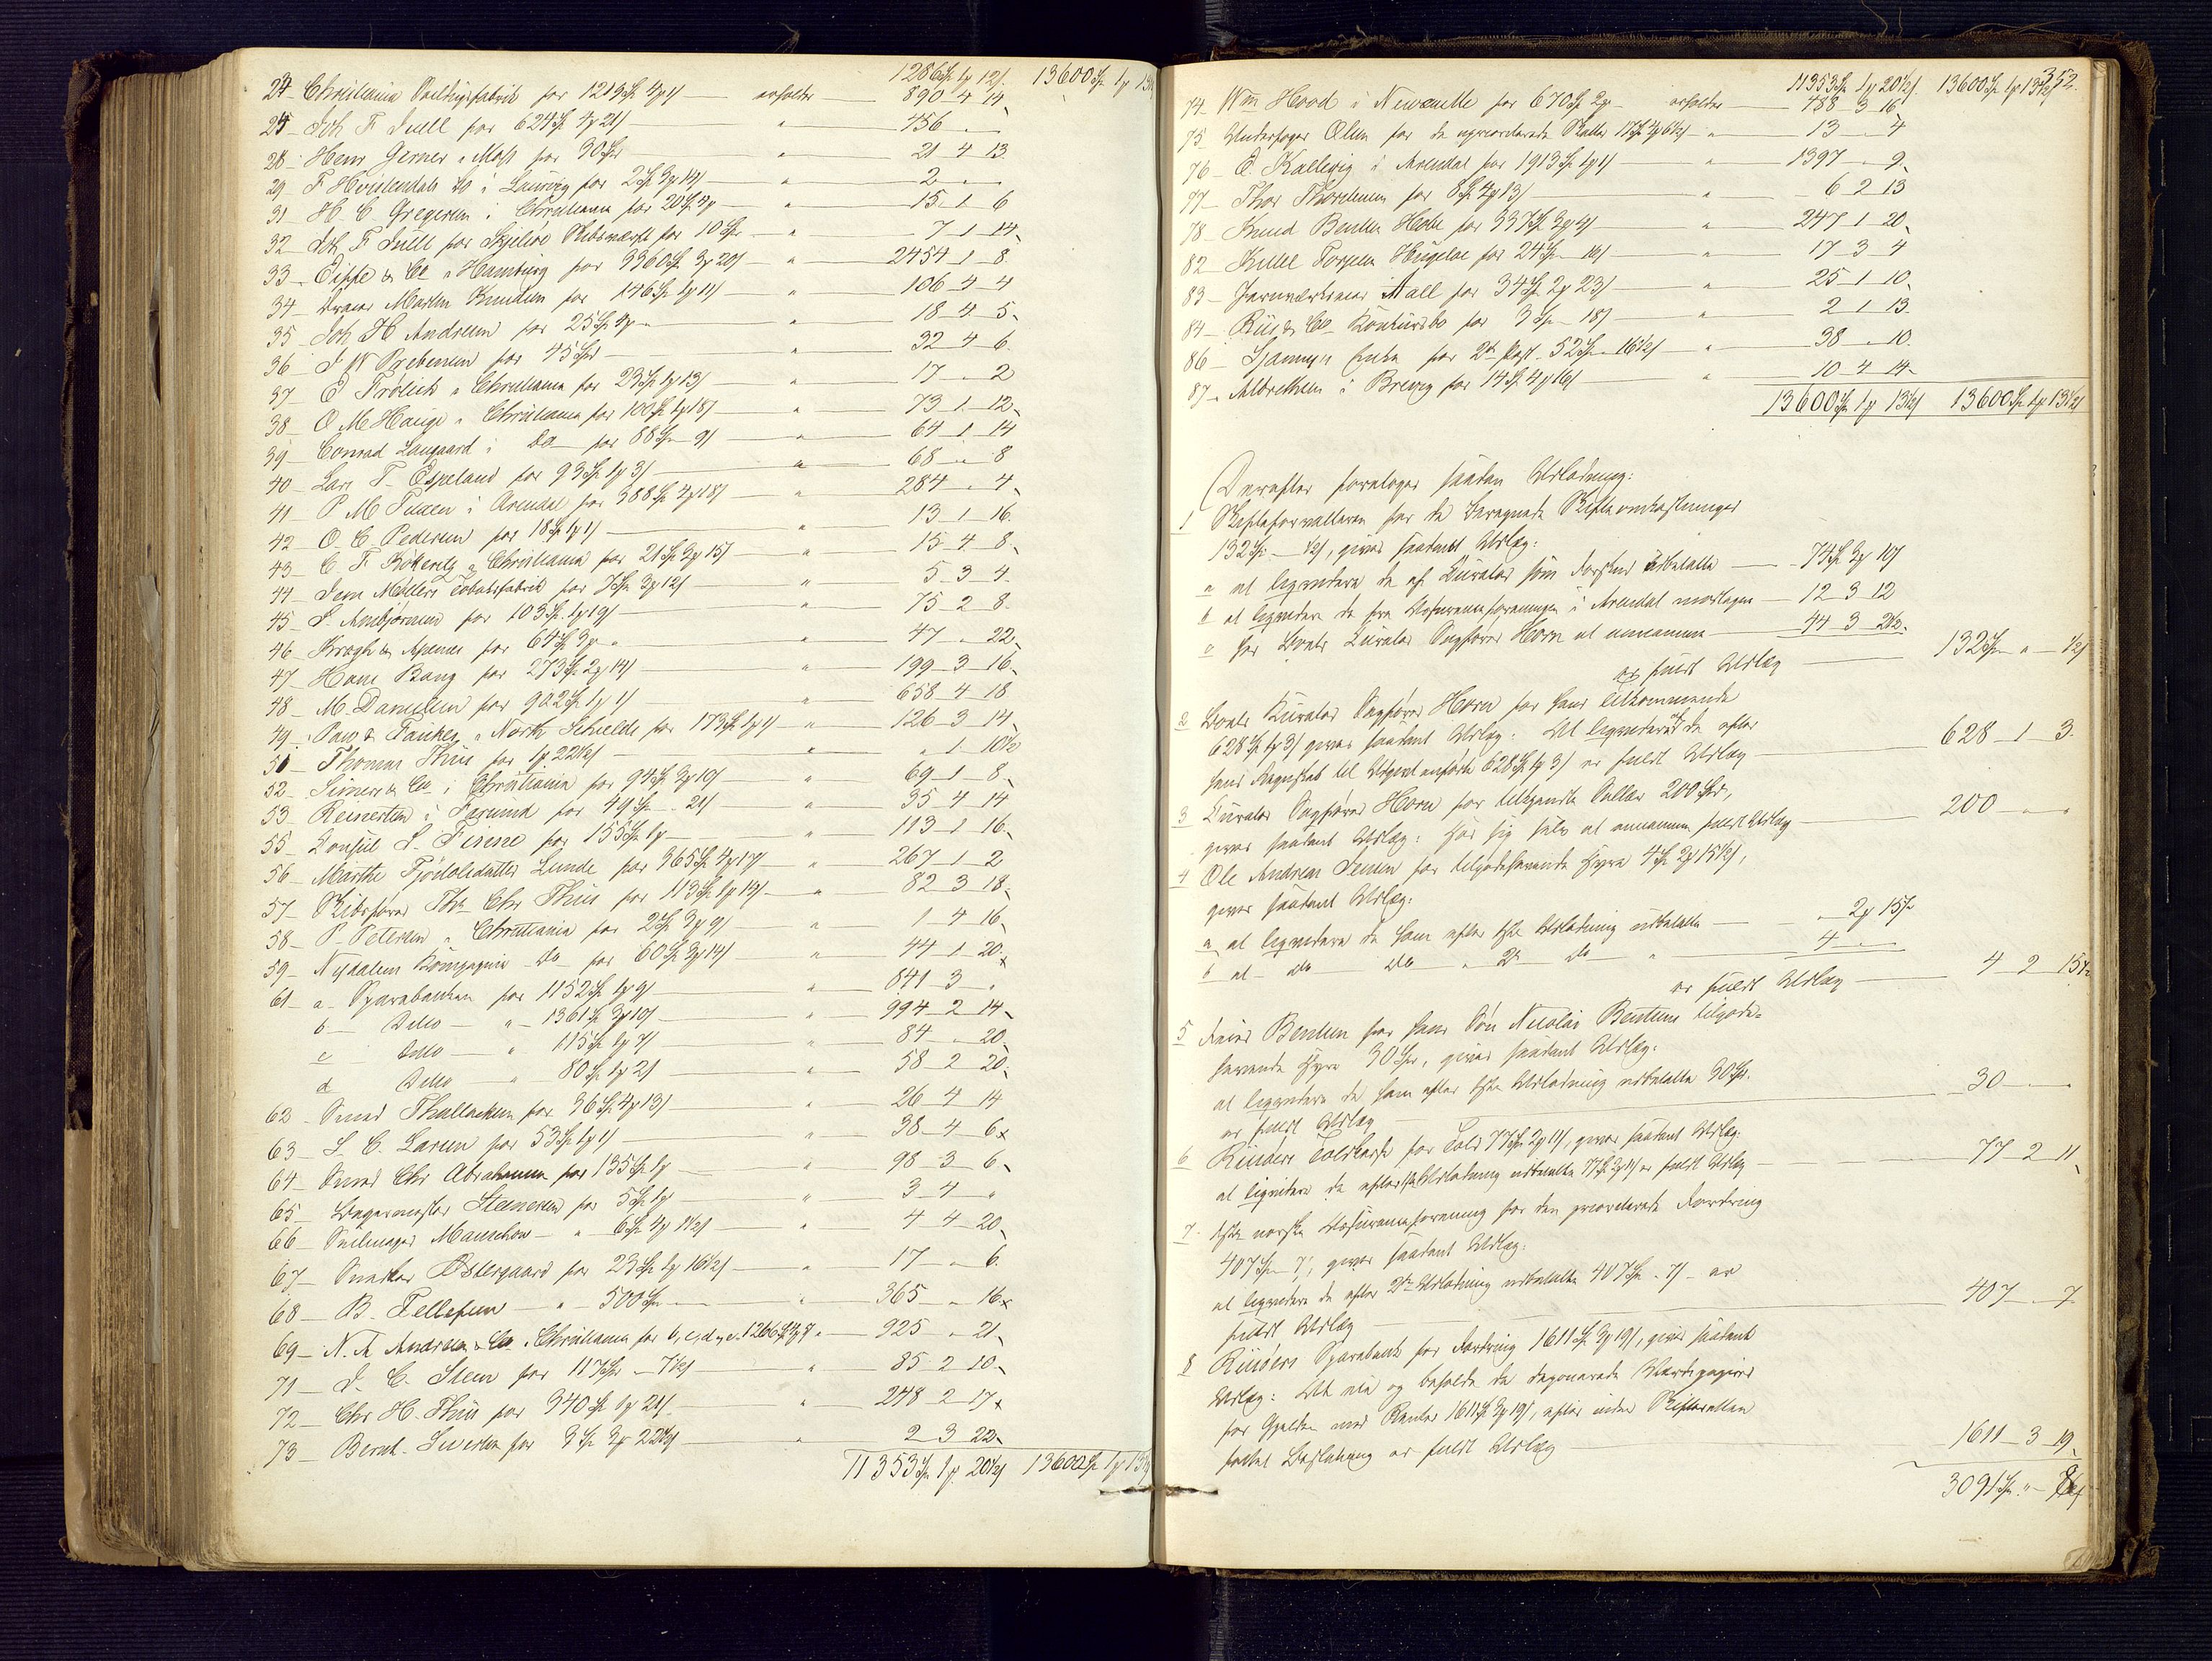 1286 Sp 1 12/. 13600 Sp 1
24 Christiania Seildugsfabrik for 1219 Sp 4 1/ — erholder — 890 4 14
25 Joh F Juell for 624 Sp 4 21/ — " — 456 " "
28 Henr Gerner i Moss for 30 Spd — " — 21 4 13
29 F Hvistendals Bo i Laurvig for 2 Sp 3 14/ — " — 2 " "
31 H. C. Gregersen i Christiania for 20 Sp 4 — " — 15 1 6
32 Joh F Juell for Skibsværft for 10 Sp — " — 7 1 14
33 Eiffe & Co i Hamburg for 3360 Sp 3 20/ — " — 2454 1 8
34 Martin Knudsen for 146 Sp 1 11/ — " — 106 4 4
35 Joh H Andresen for 25 Sp 4 " — " — 18 4 5
36 J W Prebensen for 45 Spd — " — 32 4 6
37 E Frölich i Christiania for 23 Sp 1 13/ — " — 17 " 2
38 O M Hauge i Christiania for 100 Sp 1 18/ — " — 73 1 12
39 Conrad Langaard i Do for 88 Sp 9/ — " — 64 1 14
40 Lars T. Espeland for 93 Sp 1 3/ — " — 68 " 8
41 P M Tuxen i Arendal for 388 Sp 4 18/ — " — 284 " 4
42 O. C. Pedersen for 18 Sp 1 1/ — " — 13 1 16
43 C. F. i Christiania for 21 Sp 3 15/ — " — 15 4 8
44 Møllers Tobaksfabrik for 7 Sp 3 12/ — " — 5 3 4
45 S. Ambjørnsen for 103 Sp 1 19/ — " — 75 2 8
46 Krogh & for 64 Sp 3 " — " — 47 " 22
47 Hans Bang for 273 Sp 2 14/ — " — 199 3 16
48 M. Danielsen for 902 Sp 1 1/ — " — 658 4 18
49 Paw & Fauker i North Schields for 173 Sp 1 1/ — " — 126 3 14
51 Thomas Thiis for 1 22½/ — " — " 1 10½
52 & Co i Christiania for 94 Sp 3 19/ — " — 69 1 8
53 Reinertsen i Farsund for 49 Sp " 21/ — " — 35 4 14
55 Konsul S. Finne for 155 Sp 1 — " — 113 1 16
56 Marthe Lunde for 365 Sp 4 17/ — " — 267 1 2
57 Skibsfører Ths Chr Thiis for 113 Sp 1 19/ — " — 82 3 18
58 P. Petersen i Christiania for 2 Sp 3 9/ — " — 1 4 16
59 Nydalens Kompagnie Do for 60 Sp 3 14/ — " — 44 1 20
61 a Sparebanken for 1152 Sp 1 9/ — " — 841 3 "
b Ditto " 1361 Sp 3 19/ — " — 994 2 14
c Ditto " 115 Sp 1 7/ — " — 84 " 20
d Ditto " 80 Sp 1 2/ — " — 58 2 20
62 Smed Thallacksen for 36 Sp 4 13/ — " — 26 4 14
63 S. C. Larsen for 53 Sp 1 1/ — " — 38 4 6
64 Smed Chr Abrahamsen for 135 Sp 1 — " — 98 3 6
65 Steinersen for 5 Sp 1 — " — 3 4 "
66 Seilmager Manschow " 6 Sp 4 1½/ — " — 4 4 20
67 Snekker Østergaard for 23 Sp 1 16½/ — " — 17 " 6
68 B. Tellefsen " 500 Sp — " — 365 " 16
69 N. A. Andresen & Co i Christiania for b, c, d, e. 1266 Sp 4 — 925 " 21
71 J. C. Steen for 117 Sp " 7½/ — " — 85 2 10
72 Chr H. Thiis for 340 Sp 1 21/ — " — 248 2 17
73 Bernt. Sivertsen for 3 Sp 3 22½/ — " — 2 3 22
11353 Sp 1 20½/ 13600 Sp 1 13½
352.
11353 Sp 1 20½/ 13600 Sp 1 13½/
74 Wm Hood i Newcastle for 670 Sp 2 " — erholder — 488 3 16
75 Underfoged Olsen for de uprioriterede Skatter 17 Sp 4 6½/ — " — 13 " 4
76 E. Kallevig i Arendal for 1913 Sp 1 1/ — " — 1397 " 9
77 Thor Thorsensen for 8 Sp 4 13/ — " — 6 2 13
78 Knud Bentsen for 337 Sp 3 4/ — " — 247 1 20
82 Torjesen for 24 Sp " 16/ — " — 17 3 4
83 Jernværkseier Aall for 34 Sp 2 23/ — " — 25 1 10
84 Riis & Co Konkursbo for 3 Sp " 18/ — " — 2 1 13
86 Enke for 2d Post 52 Sp " 16½/ — " — 38 " 10
87 Albrethsen i Brevig for 14 Sp 4 16/ — " — 10 4 14
13600 Sp 1 13½/ 13600 Sp 1 13½/
Derefter foretoges saadan Udlodning:
1 Skifteforvalteren for de beregnede Skifteomkostninger
132 Sp " ½/, gives saadant Udlæg:
a at liqvidere de af Kurator som Forskud udbetalte — 74 Sp 3 10/
b at liqvidere de fra Assuranceforeningen i Arendal modtagne — 12 3 12
c hos Boets Kurator Sagfører Horn at annamme — 44 3 2½
er fuldt Udlæg — 132 Sp " ½/
2 Boets Kurator Sagfører Horn for hans tilkommende
628 Sp 1 3/ gives saadant Udlæg: At liqvidere de efter
hans Regnskab til Udgivt anførte 628 Sp 1 3/ er fuldt Udlæg — 628 1 3.
3 Kurator Sagfører Horn for tilkjendte Salær 200 Spd,
gives saadant Udlæg: hos sig selv at annamme fuldt Udlæg — 200 " "
4 Ole Andreas Jensen for tilgodehavende Hyre 4 Sp 2 15½/,
gives saadant Udlæg:
a at liqvidere de ham efter 1ste Udlodning udbetalte — " 2 15½
b at do do " 2d do " — 4 " "
er fuldt Udlæg — 4 2 15½
5 Bentsen for hans Søn Nicolai Bentsens tilgode-
havende Hyre 30 Spd, gives saadant Udlæg:
at liqvidere de ham efter 1ste Udlodning udbetalte 30 Spd.
er fuldt Udlæg — 30 " "
6 Risørs Toldkasse for Told 77 Sp 2 11/, gives saadant Udlæg:
at liqvidere de efter 1ste Udlodning udbetalte 77 Sp 2 11/ er fuldt Udlæg — 77 2 11
7 1ste norske Assuranceforening for den prioriterede Fordring
407 Sp " 7/, gives saadant Udlæg:
at liqvidere de efter 2den Udlodning udbetalte 407 Sp " 7/ er
fuldt Udlæg — 407 " 7
8 Risørs Sparebank for Fordring 1611 Sp 3 19/, gives saadant
Udlæg: At eie og beholde de deponerede Værdipapirer
for Gjælden med Renter 1611 Sp 3 19/, efter inden Skifteretten
fattet Beslutning er fuldt Udlæg — 1611 3 19
3091 Sp "